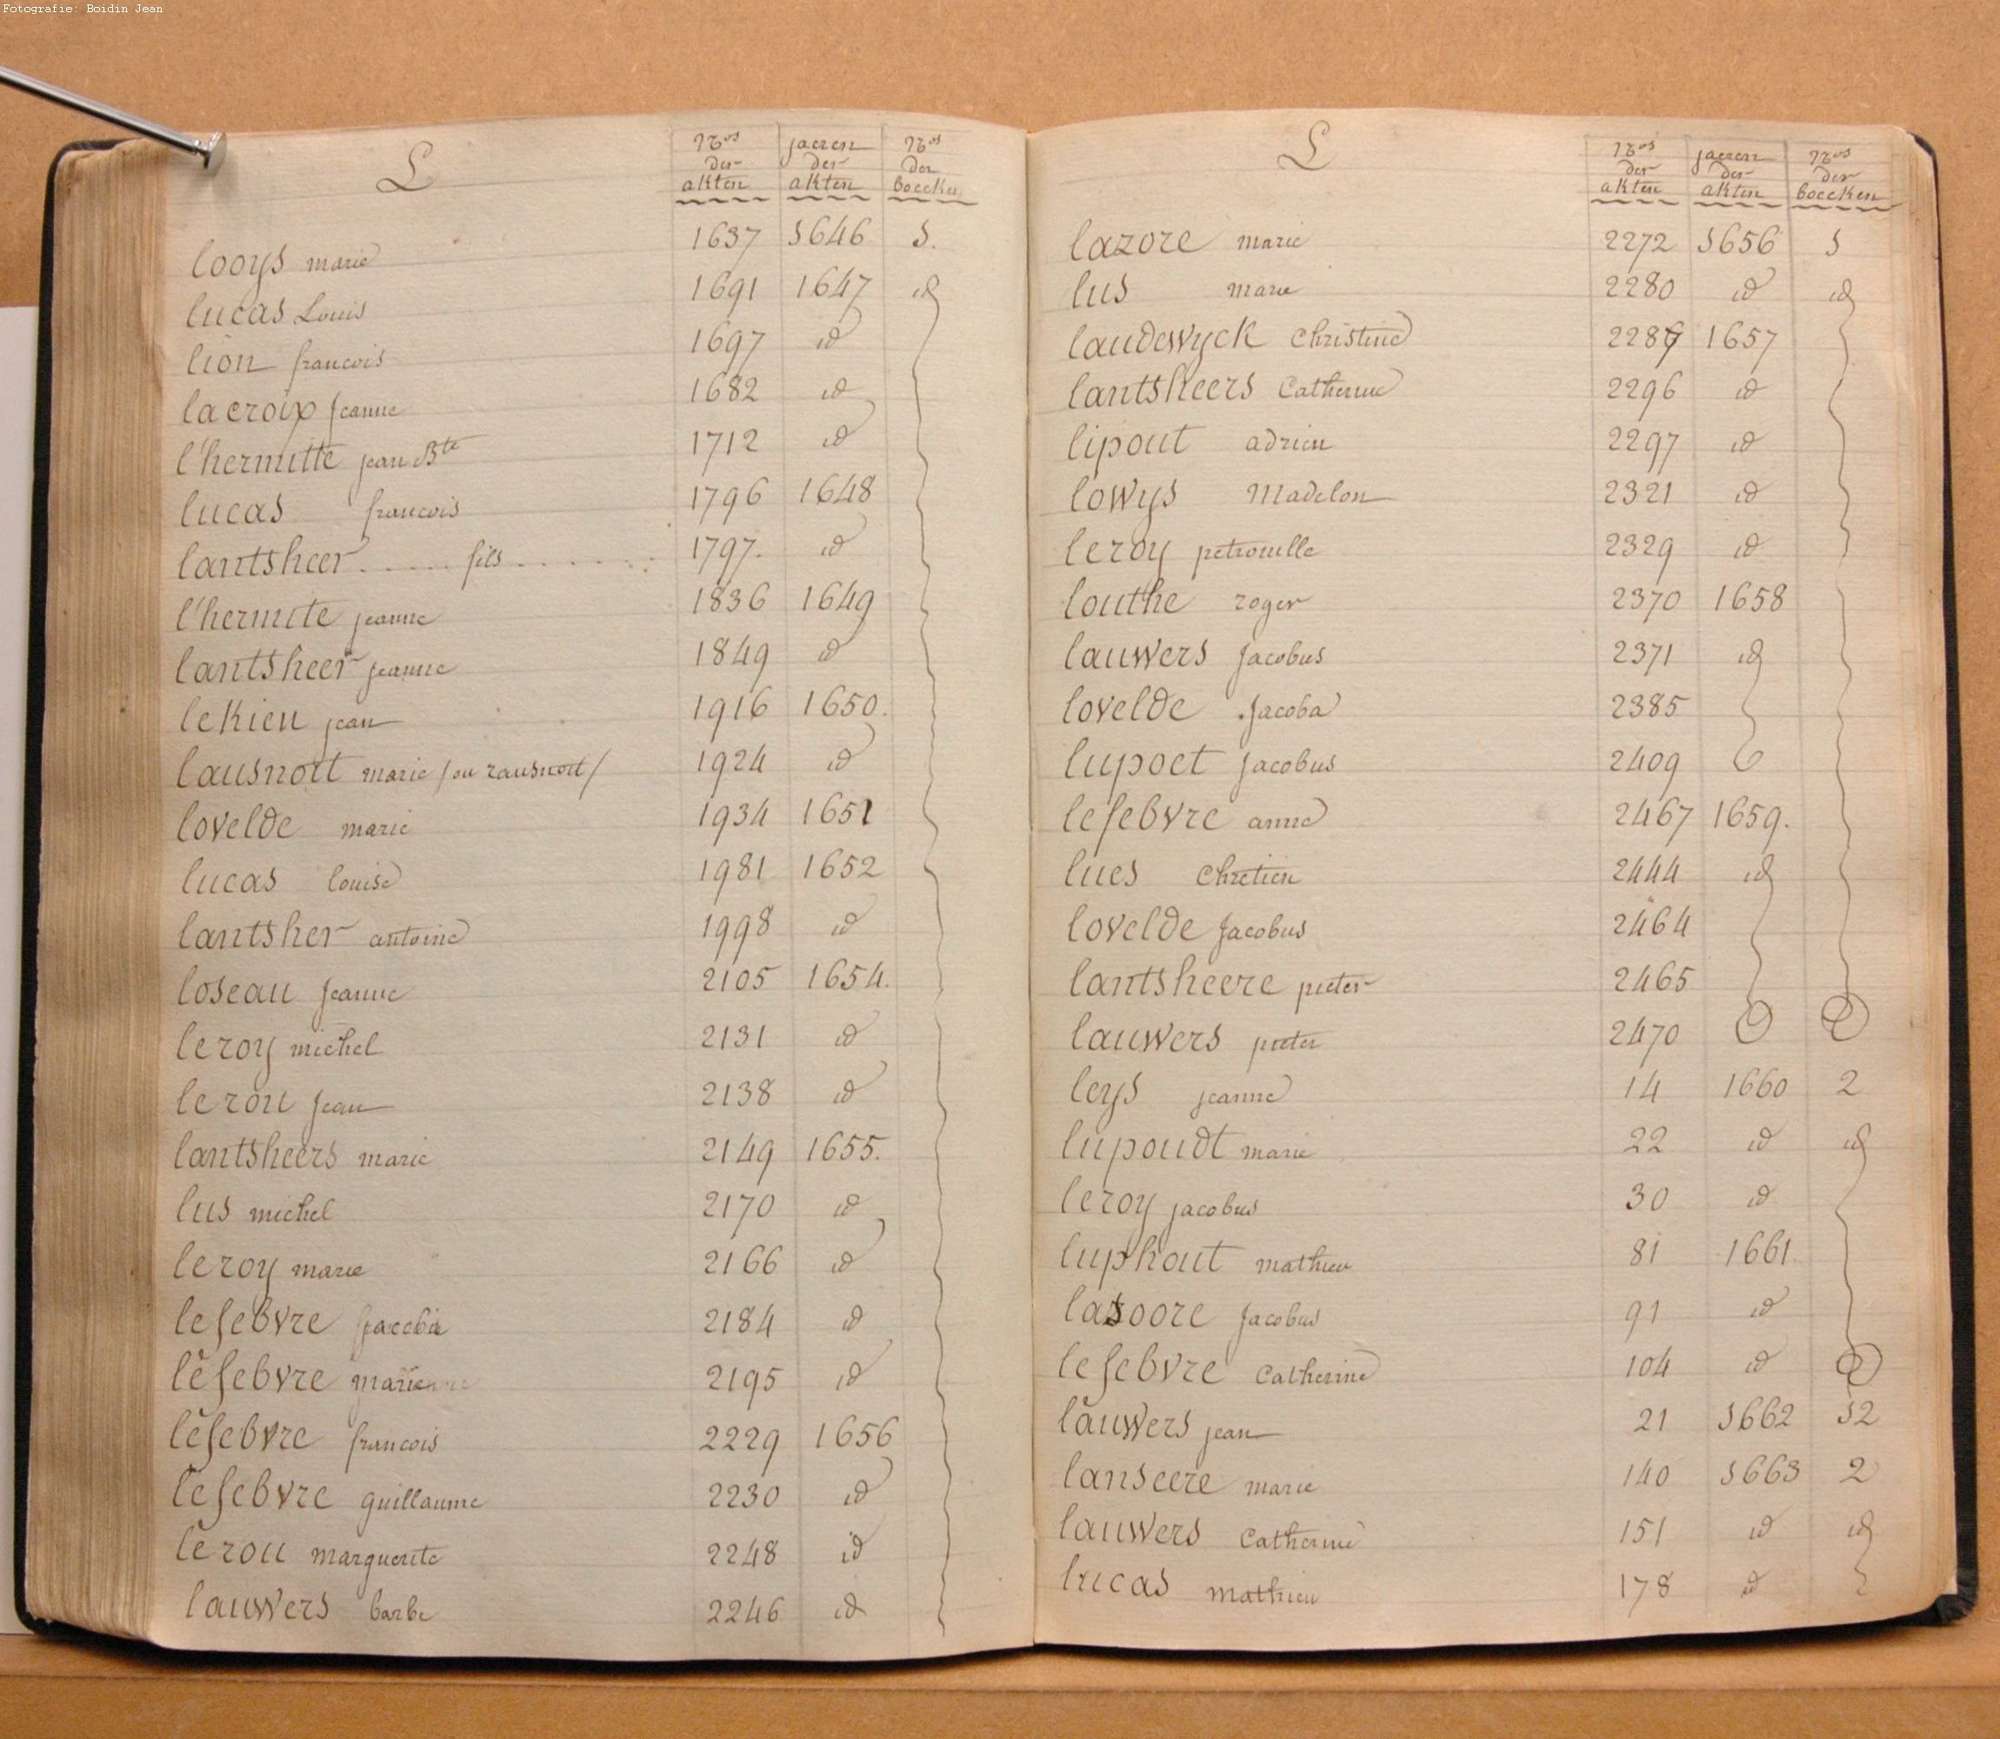 Fotografie: Boidin Jean
L
Nos der akten jaeren der akten Nos der boecken
looys marie 1637 1646 1.
lucas Louis 1691 1647 id
lion francois 1697 id
lacroix Jeanne 1682 id
l'hermitte jean Bte 1712 id
lucas francois 1796 1648
lantsheer ..... fils ...... 1797. id
l'hermite jeanne 1836 1649
lantsheer jeanne 1849 id
leKieu jean 1916 1650.
lausnoit marie / ou rausnoit / 1924 id
lovelde marie 1934 1651
lucas louise 1981 1652
lantsher antoine 1998 id
loseau Jeanne 2105 1654.
leroy michel 2131 id
lerou Jean 2138 id
lantsheers marie 2149 1655.
lus michel 2170 id
leroy marie 2166 id
lefebvre Jacoba 2184 id
lefebvre marie 2195 id
lefebvre francois 2229 1656
lefebvre guillaume 2230 id
lerou marguerite 2248 id
lauwers barbe 2246 id
L
Nos der akten jaeren der akten Nos der boecken
lazore marie 2272 1656 1
lus marie 2280 id id
laudewyck Christine 1657
lantsheers Catherine 2296 id
lipout adrien 2297 id
lowys Madelon 2321 id
leroy petronille 2329 id
louthe roger 2370 1658
lauwers Jacobus 2371 id
lovelde Jacoba 2385
lupoet Jacobus 2409
lefebvre anne 2467 1659.
lues Chretien 2444 id
lovelde Jacobus 2464
lantsheere pieter 2465
lauwers pieter 2470
leys jeanne 14 1660 2
lupoudt marie 22 id id
leroy jacobus 30 id
luphout mathieu 81 1661
lasoore Jacobus 91 id
lefebvre Catherine 104 id
lauwers jean 21 1662 12
lanseere marie 140 1663 2
lauwers Catherine 151 id id
lucas mathieu 178 id